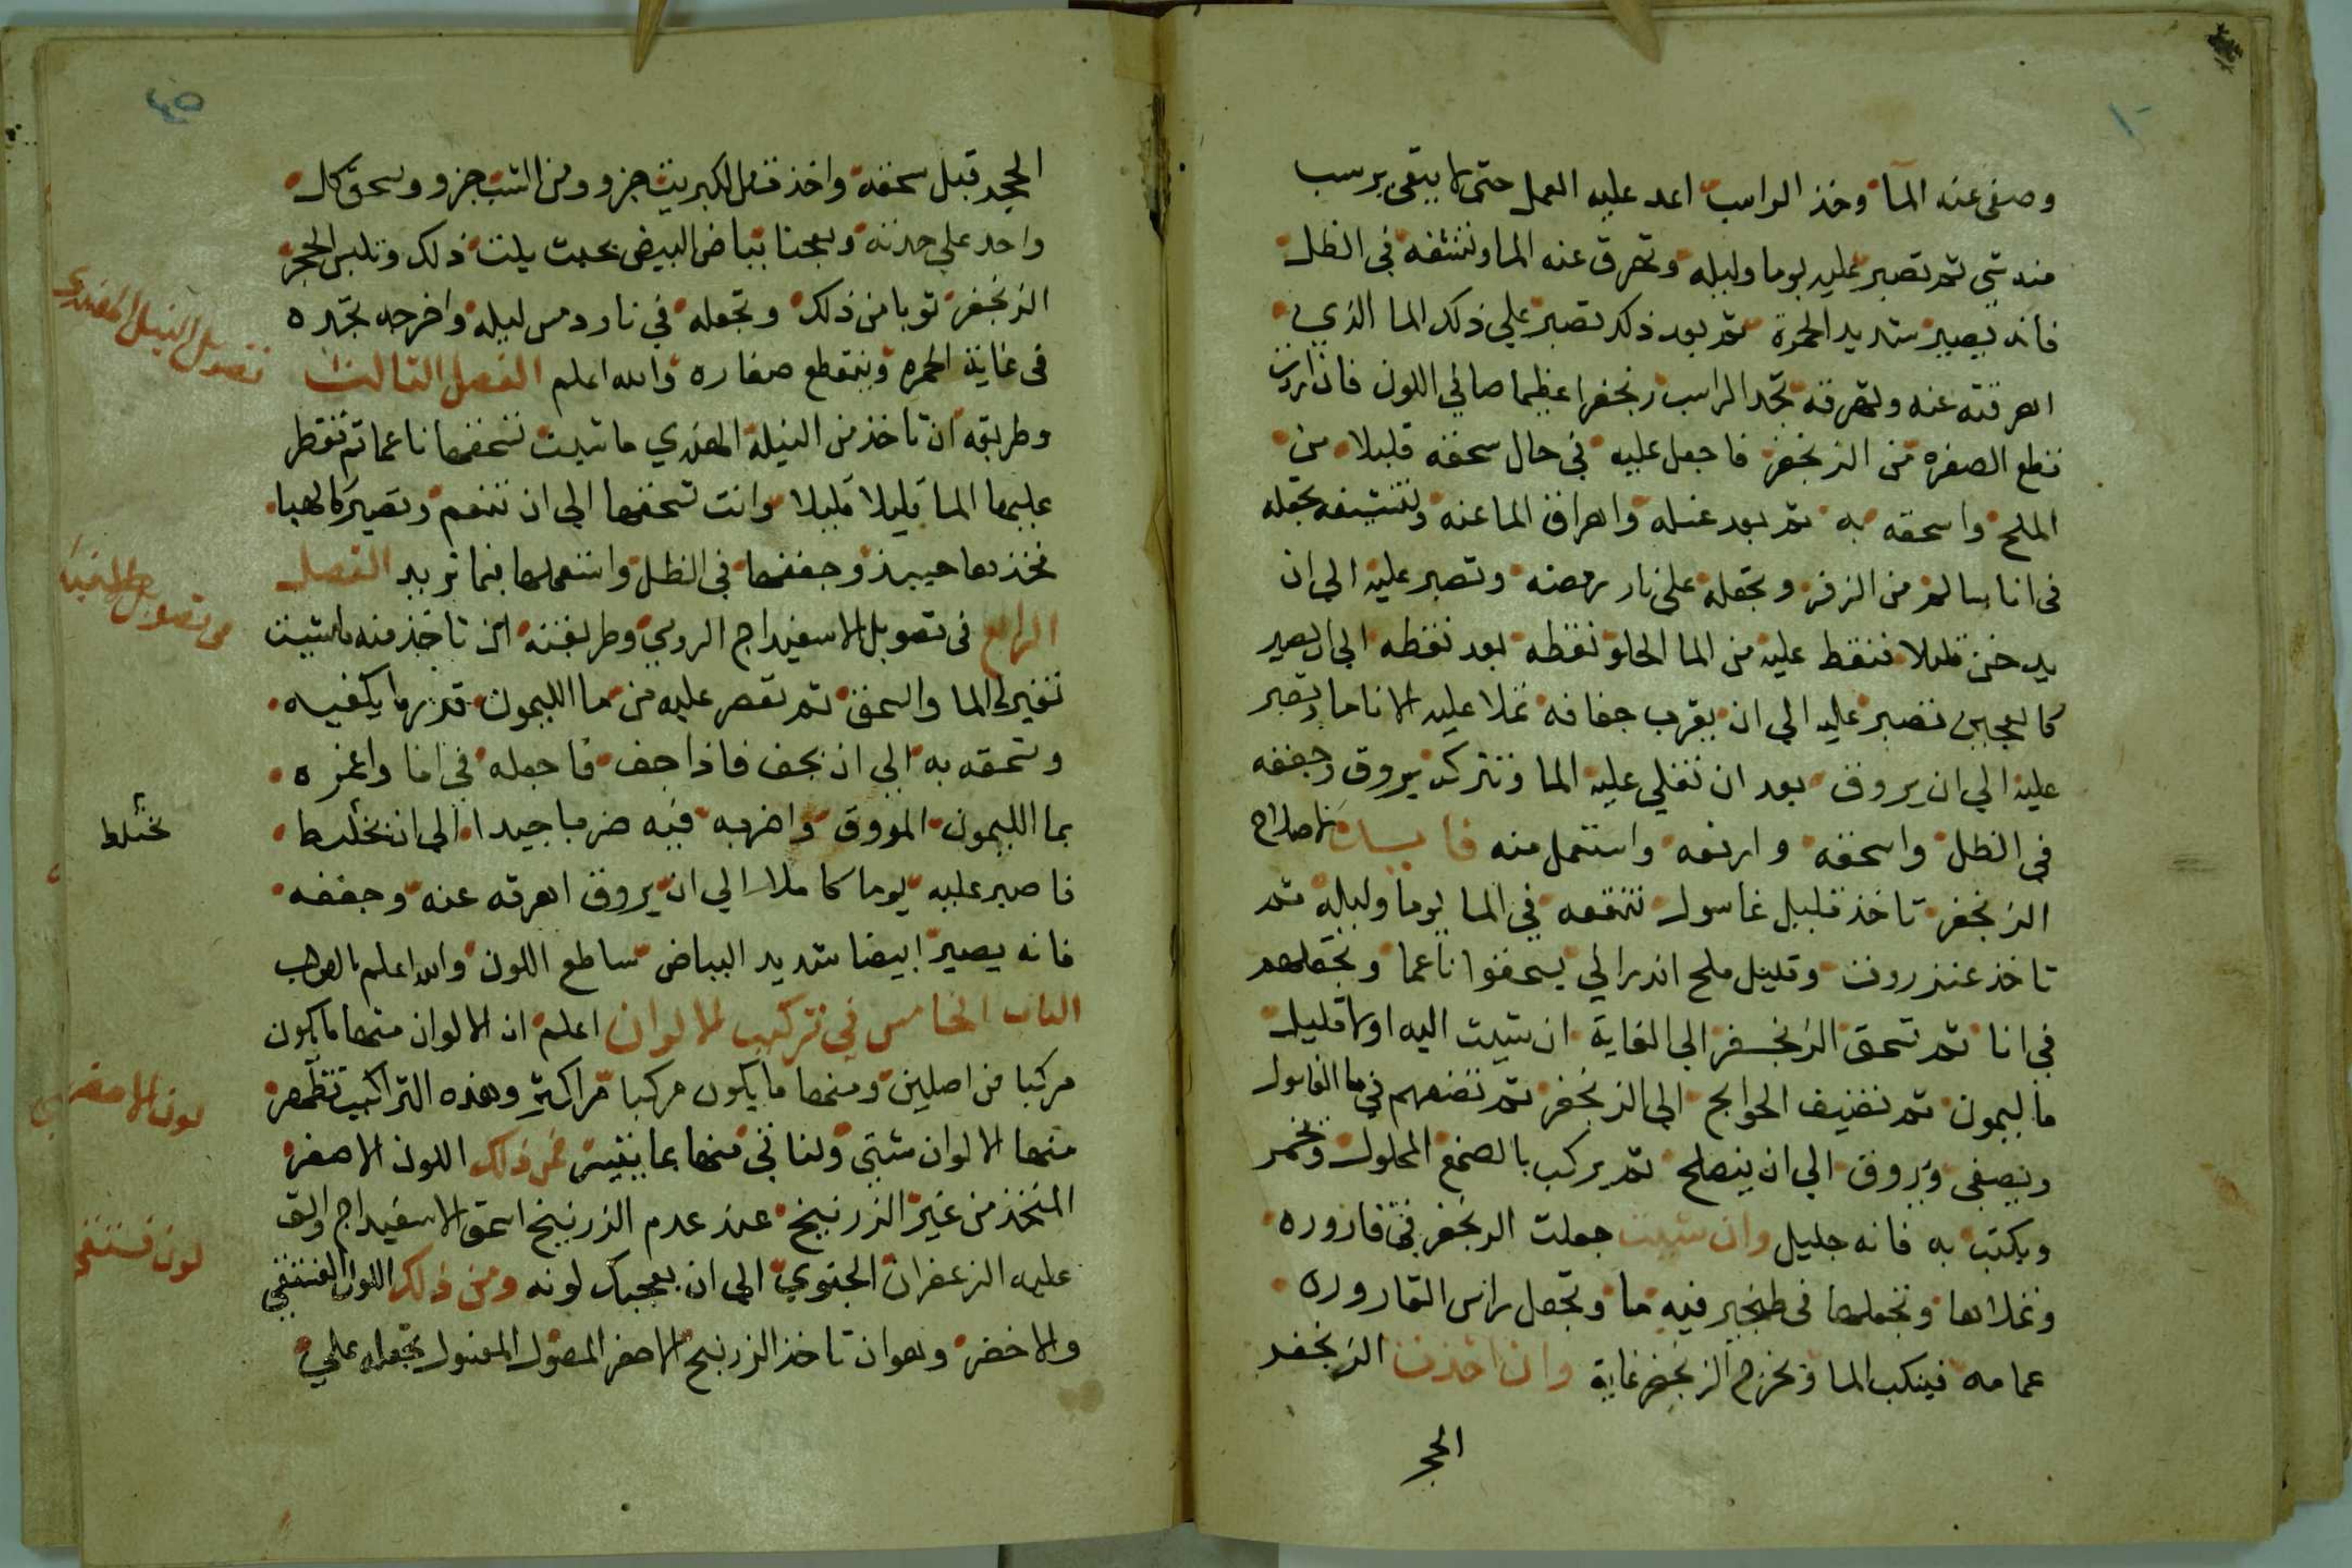 وصفي عنه الما وخذ الراسب اعد عليه العمل حتى لا يبقى يرسب
منه شي ثم تصبر عليه يوما وليله وتهرق عنه الما وتنشفه في الظل
فانه يصير شديد الحمرة ثم بعد ذلك تصبر علي ذلك الما الذي
اهرقته عنه وتهرقه تجد الراسب زنجفرا عظيما صافي اللون فان اردت
تقطع الصفره من الزنجفر فاجعل عليه في حال سحقه قليلا من
الملح واسحقه به ثم بعد غسله واهراق الما عنه وتنشيفه تجعله
في انا سالم من الزفر وتجعله علي نار وتصبر عليه الي ان
يدخن قليلا فنقط عليه من الما الحلو نقطه بعد نقطه الي ان يصير
كالعجين تصبر عليه الي ان يقرب جفافه تملا عليه الانا ما وتصبر
عليه الي ان يروق بعد ان تغلي عليه الما وتتركه يروق وجففه
في الظل واسحقه وارفعه واستعمل منه لاصلاح
الزنجفر تاخذ قليل غاسول تنقعه في الما يوما وليله ثم
تاخذ عنزروت وقليل ملح اندراني يسحقوا ناعما وتجعلهم
في انا ثم تسحق الزنجفر الي الغاية ان شيت اليه اولا قليل
ما ليمون ثم تضيف الحوايج الي الزنجفر ثم تضعهم في ما الغاسول
ويصفي ويروق الي ان ينصلح ثم يركب بالصمغ المحلول ويخمر
ويكتب به فانه جليل وان شيت جعلت الزنجفر في قاروره
وتملاها وتجعلها في طنجير فيه ما وتجعل راس القاروره
عمامه فينكب الما ويخرج الزنجفر غاية وان اخذت الزنجفر
الحجر
٤٥
الحجر قبل سحقه واخذت من الكبريت جزو ومن الشب جزو وسحق كل
واحد علي حدته وبعجنا ببياض البيض بحيث يلت ذلك وتلبس الحجر
الزنجفر ثوبا من ذلك وتجعله في نار دمس ليله واخرجه تجده
في غاية الحمره وينقطع صفاره والله اعلم الفصل الثالث
تصويل النيل الهندي
وطريقه ان تاخذ من النيلة الهندي ما شيت تسحقها ناعما ثم تنقط
عليها الما قليلا قليلا وانت تسحقها الي ان تنعم وتصير كالهبا
فخذها حينيذ وجففها في الظل واستعملها فيما تريد الفصل
الرابع في تصويل الاسفيداج الرومي وطريقته ان تاخذ منه ما شيت
تغيره الما والسحق ثم تعصر عليه من ما الليمون قدر ما يكفيه
وتسحقه به الي ان يجف فاذا جف فاجعله في انا واغمره
بما الليمون المروق واضربه فيه ضربا جيدا الي ان يختلط
يختلط
فاصبر عليه يوما كاملا الي ان يروق اهرقه عنه وجففه
فانه يصير ابيضا شديد البياض ساطع اللون والله اعلم بالصواب
الباب الخامس في تركيب الالوان اعلم ان الالوان منها ما يكون
مركبا من اصلين ومنها ما يكون مركبا من اكثر وهذه التراكيب تظهر
منها الالوان شتي ولناتي منها بما يتيسر فمن ذلك اللون الاصفر
لون الاصفر
المتخذ من غير الزرنيخ عند عدم الزرنيخ اسحق الاسفيداج والق
عليه الزعفران الجنوي الي ان يعجبك لونه ومن ذلك اللون الفستقي
لون فستقي
والاخضر وهو ان تاخذ الزرنيخ الاصفر المصول المغسول تجعله علي